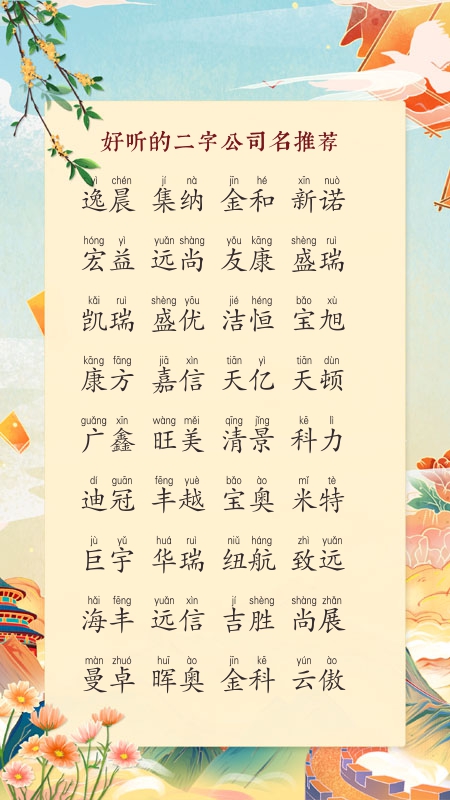 好听的二字公司名推荐
yì chén jí nà jīn hé xīn nuò
逸晨 集纳 金和 新诺
hóng yì yuǎn shàng yǒu kāng shèng ruì
宏益 远尚 友康 盛瑞
kǎi ruì shèng yōu jié héng bǎo xù
凯瑞 盛优 洁恒 宝旭
kāng fāng jiā xìn tiān yì tiān dùn
康方 嘉信 天亿 天顿
guǎng xīn wàng měi qīng jǐng kē lì
广鑫 旺美 清景 科力
dí guān fēng yuè bǎo ào mǐ tè
迪冠 丰越 宝奥 米特
jù yǔ huá ruì niǔ háng zhì yuǎn
巨宇 华瑞 纽航 致远
hǎi fēng yuǎn xìn jí shèng shàng zhǎn
海丰 远信 吉胜 尚展
màn zhuó huī ào jīn kē yún ào
曼卓 晖奥 金科 云傲